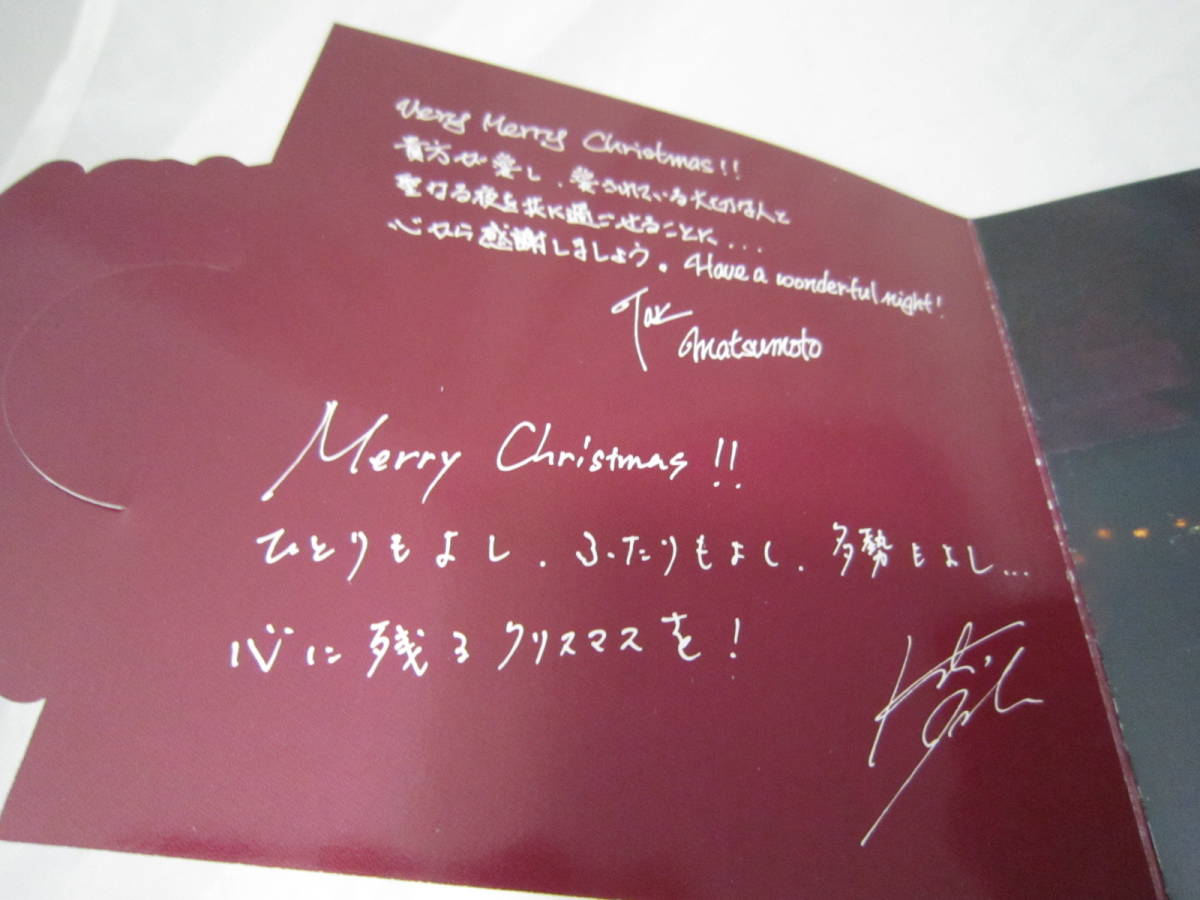 Very Merry Christmas!!
貴方が愛し、愛されている大切な人と
聖なる夜を共に過ごせることに...
心から感謝しましょう。Have a wonderful night!
Tak
Matsumoto
Merry Christmas!!
ひとりもよし、ふたりもよし、多勢もよし...
心に残るクリスマスを!